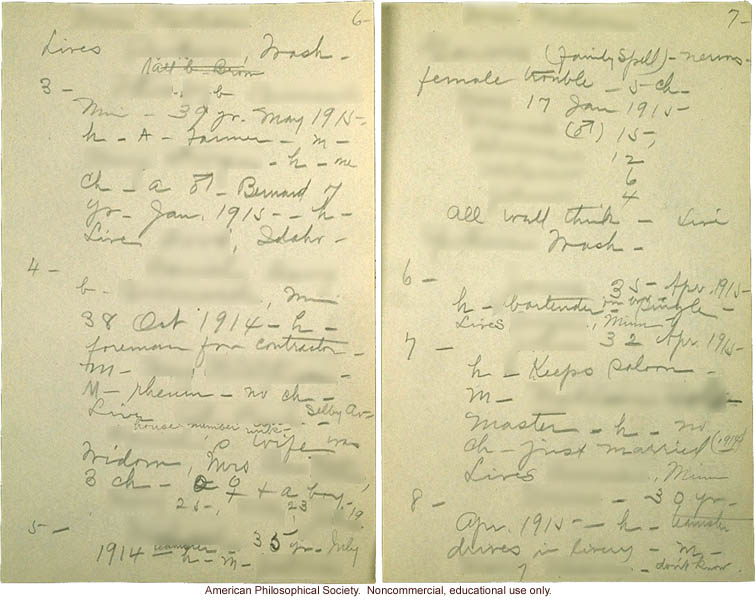 6-
Lives Wash-
b
3-
Min - 39 yr. May 1915-
h - A - Farmer - m -
- h - ne
Ch - a ♂ - Bernard 7
yr - Jan. 1915 - - h -
Live , Idaho -
4-
b- , Min
38 Oct 1914 - h -
foreman for contractor -
M-
M - rheum - no ch -
Live Selby Av-
house number
wife was
Widow, Mrs
3 ch - ♀ + a boy -
25-, 23 19
5-
35 yr - July
1914 teamster h - m -
7-
(Fainty Spell) - nervous-
female trouble - 5 ch -
17 Jan 1915-
(♂) 15,
12
6
4
All well think - Live
Wash -
6-
35 - Apr. 1915-
h - bartender - Single -
Lives , Minn
7-
32 Apr. 1915-
h - Keeps saloon -
M-
Master - h - no
ch - just married (1914)
Lives , Minn
8-
- 30 yr -
Apr. 1915 - h - teamster
drives in livery - m -
7 - don't know.
American Philosophical Society. Noncommercial, educational use only.